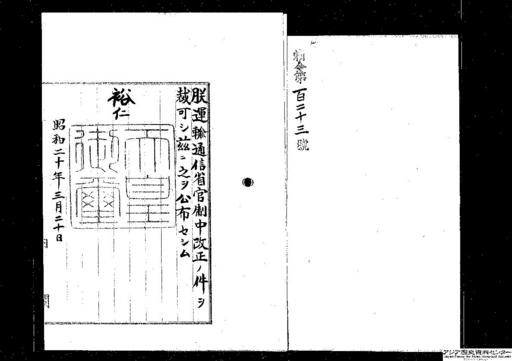 勅令第百二十三號
朕運輸通信省官制中改正ノ件ヲ
裁可シ茲ニ之ヲ公布セシム
裕仁
天皇
御璽
昭和二十年三月二十日
アジア歴史資料センター